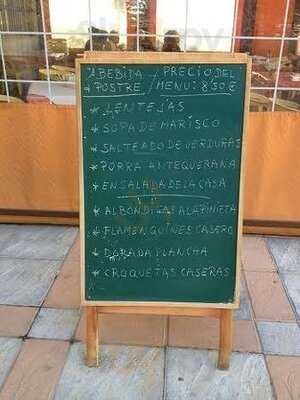 1 BEBIDA / PRECIO DEL
POSTRE / MENU: 8'50 €
* LENTEJAS
* SOPA DE MARISCO
* SALTEADO DE VERDURAS
* PORRA ANTEQUERANA
* ENSALADA DE LA CASA
* ALBONDIGAS A LA PINIETA
* FLAMENQUINES CASERO
* DORADA PLANCHA
* CROQUETAS CASERAS